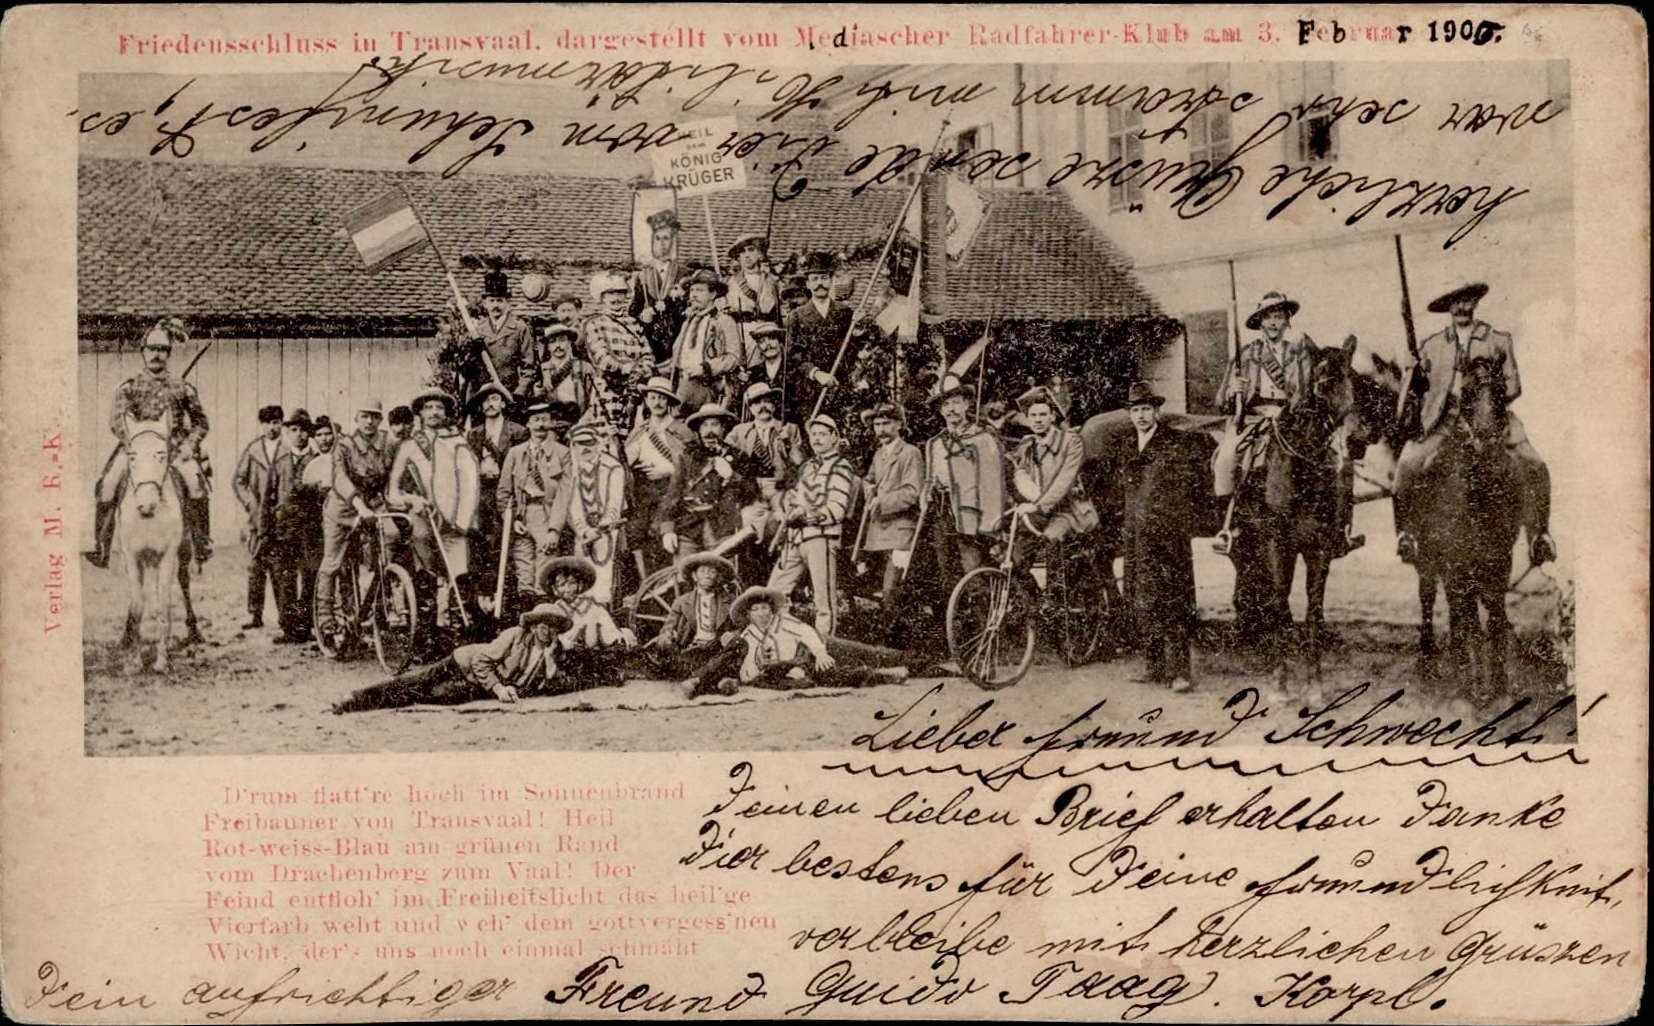 Friedensschluss in Transvaal. dargestellt vom Mediascher Radfahrer-Klub am 3. Februar 1900.
herzliche Grüsze sende Dir vom Schwimfest, es
war sehr stramm mit Militärmusik
HEIL
DEM
KÖNIG
KRÜGER
Verlag M. R.-K.
Lieber Freund Schwecht!
D'rum flatt're hoch im Sonnenbrand
Freibanner von Transvaal! Heil
Rot-weiss-Blau am grünen Rand
vom Drachenberg zum Vaal! Der
Feind entfloh' im Freiheitslicht das heil'ge
Vierfarb weht und weh' dem gottvergess'nen
Wicht, der's uns noch einmal schmäht
Deinen lieben Brief erhalten Danke
Dier bestens für Deine Freundlichkeit,
verbleibe mit herzlichen Grüszen
Dein aufrichtiger Freund Guido Taag. Korpl.